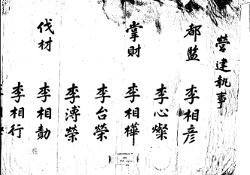 營建執事
都監 李相彦
李心燦
掌財 李相樺
李台榮
李溥榮
伐材 李相勛
李相行